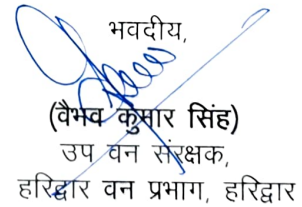 भवदीय,
(वैभव कुमार सिंह)
उप वन संरक्षक,
हरिद्वार वन प्रभाग, हरिद्वार